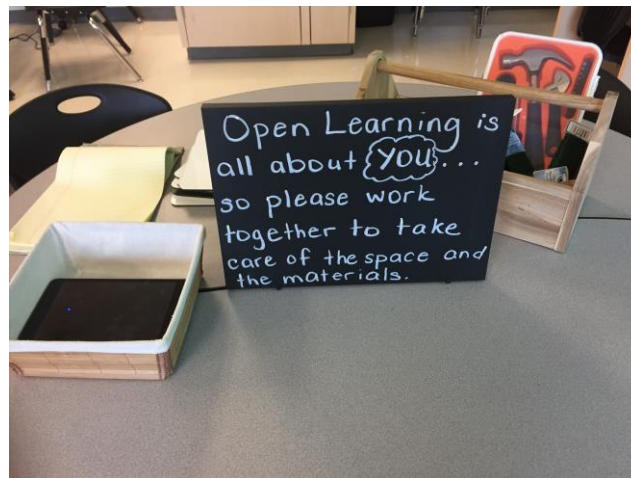 Open Learning is
all about YOU...
so please work
together to take
care of the space and
the materials.